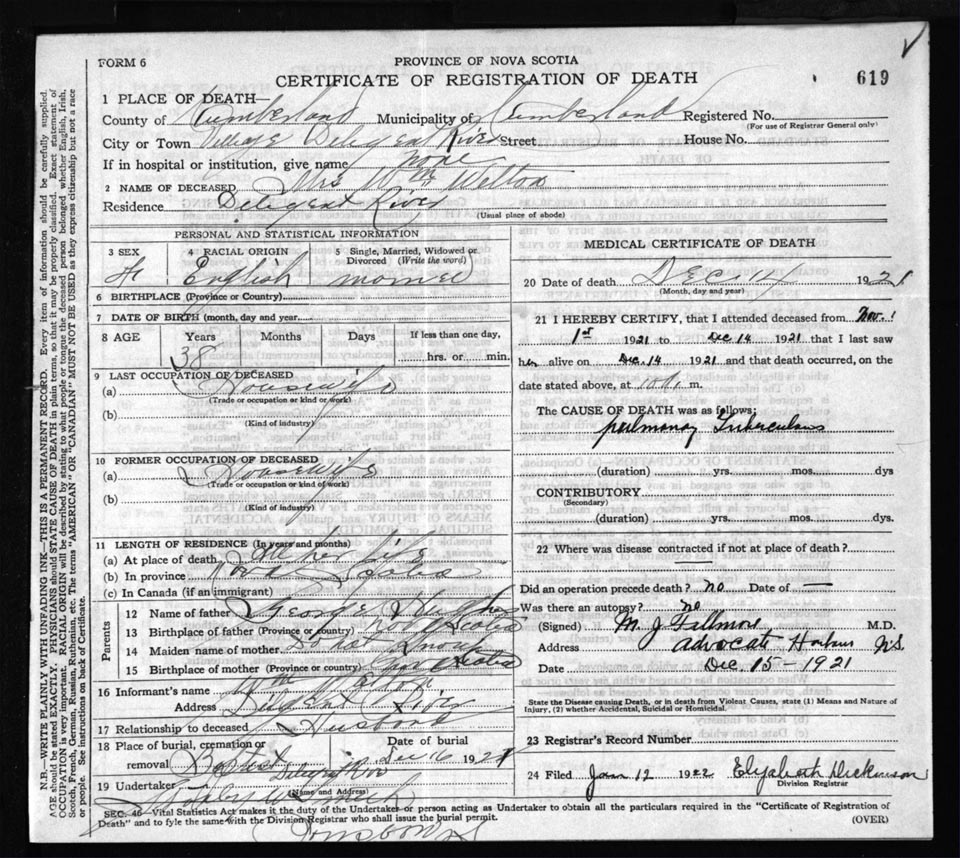 FORM 6
PROVINCE OF NOVA SCOTIA
CERTIFICATE OF REGISTRATION OF DEATH
619
1 PLACE OF DEATH—
County of Cumberland Municipality of Cumberland Registered No.
(For use of Registrar General only)
City or Town Village Deligent River Street House No.
If in hospital or institution, give name none
2 NAME OF DECEASED Mrs Wm Welton
Residence Deligent River
(Usual place of abode)
PERSONAL AND STATISTICAL INFORMATION
3 SEX 4 RACIAL ORIGIN 5 Single, Married, Widowed or Divorced (Write the word)
English
6 BIRTHPLACE (Province or Country)
7 DATE OF BIRTH (month, day and year)
8 AGE Years Months Days If less than one day,
38 hrs. or min.
9 LAST OCCUPATION OF DECEASED
(a) Housewife
(Trade or occupation or kind of work)
(b)
(Kind of industry)
10 FORMER OCCUPATION OF DECEASED
(a) Housewife
(Trade or occupation or kind of work)
(b)
(Kind of industry)
11 LENGTH OF RESIDENCE (In years and months)
(a) At place of death All her life
(b) In province Nova Scotia
(c) In Canada (if an immigrant)
Parents
12 Name of father George
13 Birthplace of father (Province or country) Nova Scotia
14 Maiden name of mother Do not Know
15 Birthplace of mother (Province or country) Nova Scotia
16 Informant's name Wm Welton
Address Deligent River
17 Relationship to deceased Husband
18 Place of burial, cremation or removal Baptist Deligent River Date of burial Dec 16 1921
19 Undertaker
(Name and Address)
MEDICAL CERTIFICATE OF DEATH
20 Date of death DEC 14 1921
(Month, day and year)
21 I HEREBY CERTIFY, that I attended deceased from Nov.
1st 1921 to Dec 14 1921 that I last saw
her alive on Dec. 14 1921 and that death occurred, on the
date stated above, at m.
The CAUSE OF DEATH was as follows:
pulmonary Tuberculosis
(duration) yrs. mos. dys
CONTRIBUTORY
(Secondary)
(duration) yrs. mos. dys.
22 Where was disease contracted if not at place of death?
Did an operation precede death? no Date of —
Was there an autopsy? no
(Signed) M. J Fillmore M.D.
Address Advocate Harbour N.S.
Date Dec 15 – 1921
State the Disease causing Death, or in death from Violent Causes, state (1) Means and Nature of
Injury, (2) whether Accidental, Suicidal or Homicidal.
23 Registrar's Record Number
24 Filed Jan 12 1922 Elizabeth Dickinson
Division Registrar
SEC. 46—Vital Statistics Act makes it the duty of the Undertaker or person acting as Undertaker to obtain all the particulars required in the "Certificate of Registration of
Death" and to fyle the same with the Division Registrar who shall issue the burial permit.
(OVER)
N.B.—WRITE PLAINLY WITH UNFADING INK—THIS IS A PERMANENT RECORD. Every item of information should be carefully supplied.
AGE should be stated EXACTLY. PHYSICIANS should STATE CAUSE OF DEATH in plain terms, so that it may be properly classified. Exact statement of
OCCUPATION is very important. RACIAL ORIGIN will be described by stating to what people or tongue the deceased person belonged whether English, Irish,
Scotch, French, German, Russian, Ruthenian, etc. The terms "AMERICAN" OR "CANADIAN" MUST NOT BE USED as they express citizenship but not a race
or people. See instructions on back of Certificate.